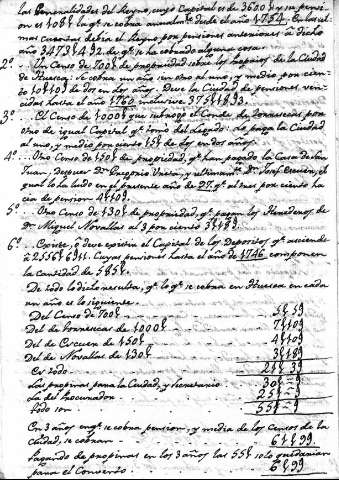 las Generalidades del Reyno, cuyo Capital es de 3600 y su pension
es 108 lo q.e se cobra annualm.te desde el año 1754. En las mismas
cuentas debia el Reyno por pensiones anteriores à dicho
año de q.e no se ha cobrado alguna cosa.
2.o Un Censo de 700 de propiedad sobre los propios de la Ciudad
de Huesca. Se cobra un año en otro al uno, y medio por ciento
de dos en dos años. Deve la Ciudad de pensiones vencidas
hasta el año 1760 inclusive
3.o El Censo de 1000 que subrogò el Conde de Torresecas por
otro de igual Capital q.e tomò del Legado. Lo paga la Ciudad
al uno, y medio por ciento 15 de dos en dos años.
4.o Otro Censo de 150 de propiedad, q.e han pagado la Casa de San
Juan, despues D.n Gregorio Vasta, y ultimam.te D.n Josef Escuer, el
qual lo ha luido en el presente año de 27. q.e al tres por ciento hacia
de pension 4 10
5.o Otro Censo de 130 de propiedad, q.e pagan los Herederos de
D.n Miguel Novallas al 3 por ciento 3 18
6.o Existe, ò deve existir el Capital de los Depositos q.e asciende
à Cuyas pensiones hasta el año de 1746 componen
la cantidad de 585.
De todo lo dicho resulta, q.e lo q.e se cobra en Huesca en cada
un año es lo siguiente.
Del Censo de 700
Del de Torresecas de 1000
Del de Escuer de 150
Del de Novallas de 130
Es todo
Las propinas para la Ciudad, y Secretario 30
La del Procurador 25
todo son 55
En 3 años en q.e se cobra pension, y media de los Censos de la
Ciudad, se cobran 61
Pagando de propinas en los 3 años las 55 solo quedarian
para el Convento. 6